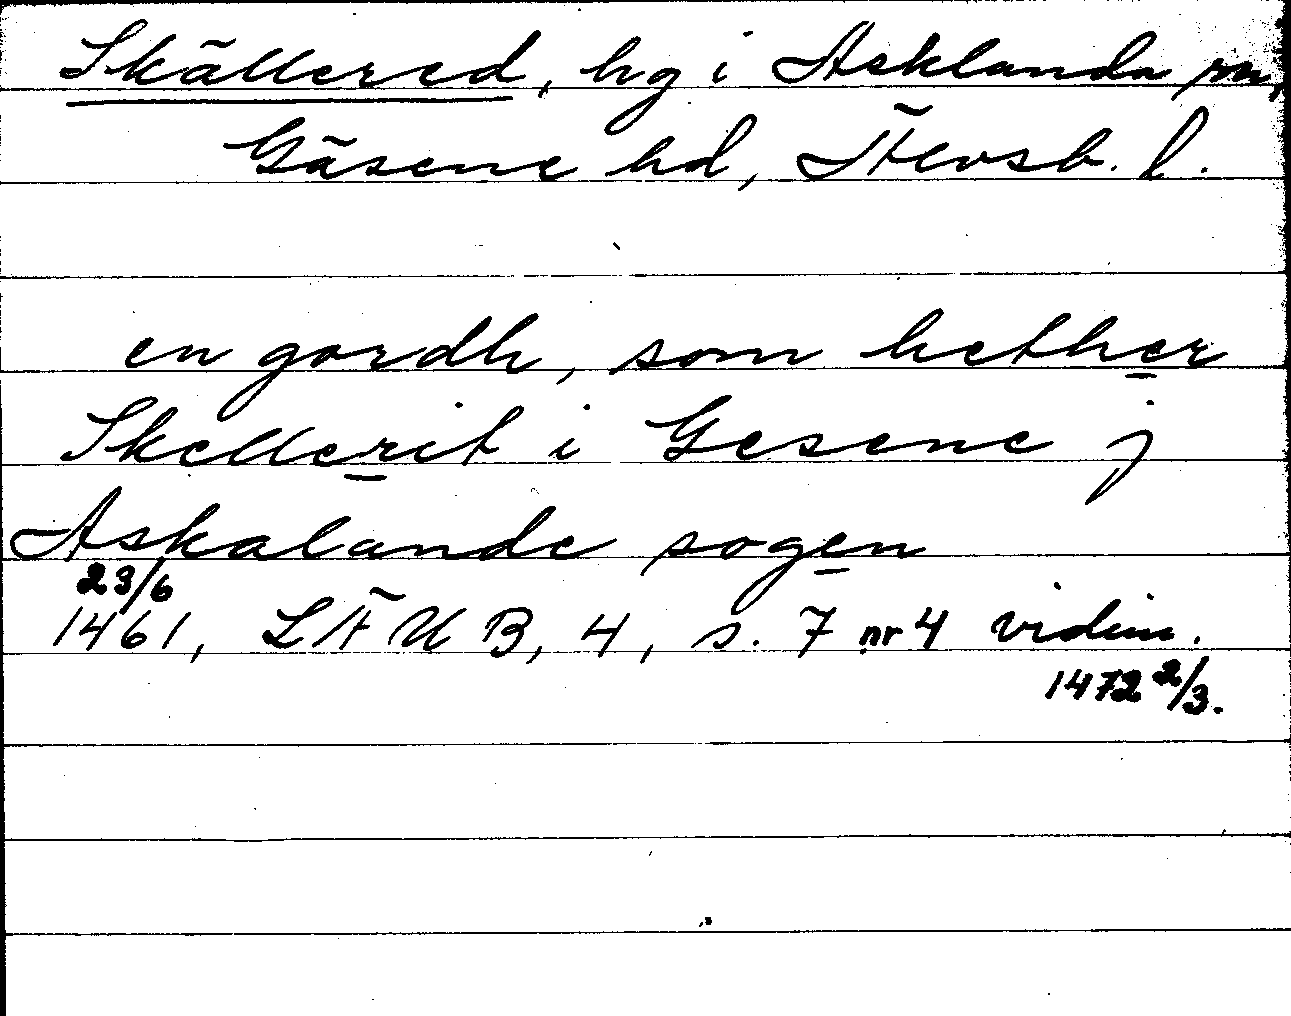 Skällered, hg i Asklanda sn,
Gäsene hd, Älvsb. l.
en gordh, som hether
Skellerit i Gesene j
Askalande sogen
23/6
1461, LÄUB, 4, s. 7 nr 4 vidim.
1472 2/3.